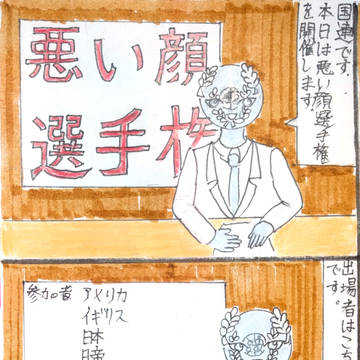 国連です。
本日は悪い顔選手権
を開催します
悪い顔
選手権
出場者はこ
です。
参加者
アメリカ
イギリス
日本